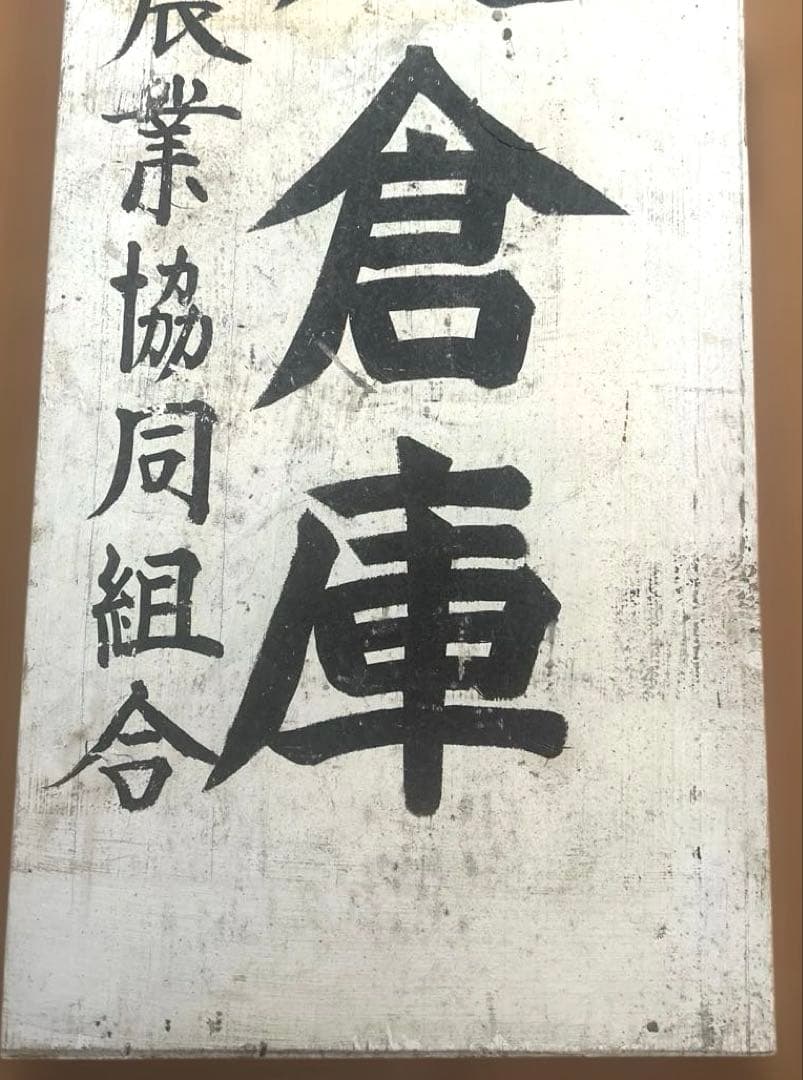 倉庫
農業協同組合